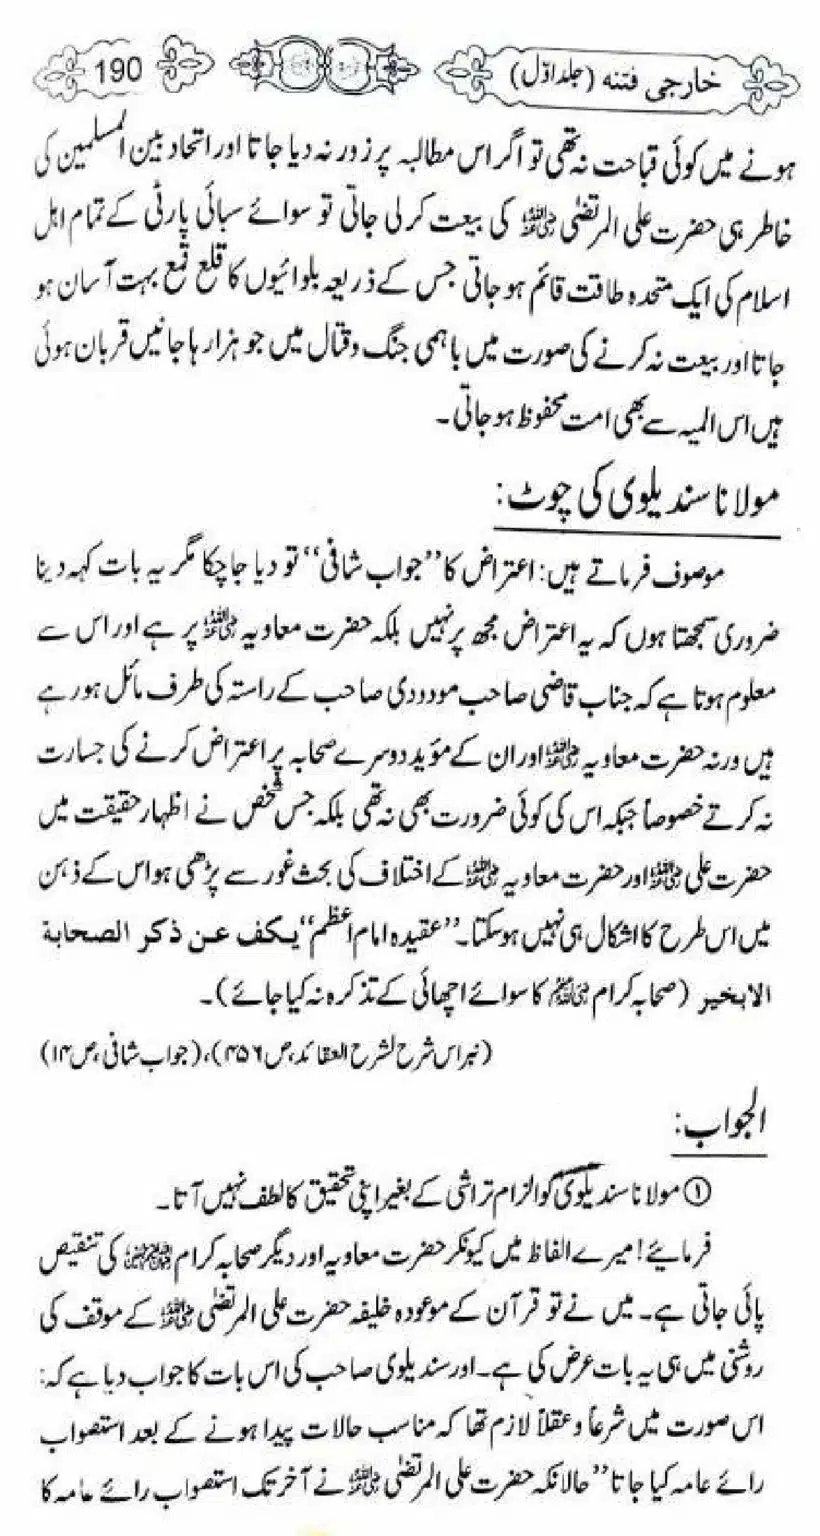 خارجی فتنہ (جلد اوّل) 190
ہونے میں کوئی قباحت نہ تھی تو اگر اس مطالبہ پر زور نہ دیا جاتا اور اتحاد بین المسلمین کی
خاطر ہی حضرت علی المرتضیٰ رضی اللہ عنہ کی بیعت کر لی جاتی تو سوائے سبائی پارٹی کے تمام اہل
اسلام کی ایک متحدہ طاقت قائم ہو جاتی جس کے ذریعہ بلوائیوں کا قلع قمع بہت آسان ہو
جاتا اور بیعت نہ کرنے کی صورت میں باہمی جنگ و قتال میں جو ہزار ہا جانیں قربان ہوئی
ہیں اس المیہ سے بھی امت محفوظ ہو جاتی۔
مولانا سندیلوی کی چوٹ:
موصوف فرماتے ہیں: اعتراض کا ”جواب شافی“ تو دیا جاچکا مگر یہ بات کہہ دینا
ضروری سمجھتا ہوں کہ یہ اعتراض مجھ پر نہیں بلکہ حضرت معاویہ رضی اللہ عنہ پر ہے اور اس سے
معلوم ہوتا ہے کہ جناب قاضی صاحب مودودی صاحب کے راستہ کی طرف مائل ہو رہے
ہیں ورنہ حضرت معاویہ رضی اللہ عنہ اور ان کے مؤید دوسرے صحابہ پر اعتراض کرنے کی جسارت
نہ کرتے خصوصاً جبکہ اس کی کوئی ضرورت بھی نہ تھی بلکہ جس شخص نے اظہار حقیقت میں
حضرت علی رضی اللہ عنہ اور حضرت معاویہ رضی اللہ عنہ کے اختلاف کی بحث غور سے پڑھی ہو اس کے ذہن
میں اس طرح کا اشکال ہی نہیں ہو سکتا۔ ”عقیدہ امام اعظم“ یکف عن ذکر الصحابة
الابخیر (صحابہ کرام رضی اللہ عنہم کا سوائے اچھائی کے تذکرہ نہ کیا جائے)۔
(نبراس شرح لشرح العقائد، ص ۴۵۶)، (جواب شافی، ص ۱۴)
الجواب:
① مولانا سندیلوی کو الزام تراشی کے بغیر اپنی تحقیق کا لطف نہیں آتا۔
فرمایئے! میرے الفاظ میں کیونکر حضرت معاویہ اور دیگر صحابہ کرام رضی اللہ عنہم کی تنقیص
پائی جاتی ہے۔ میں نے تو قرآن کے موعودہ خلیفہ حضرت علی المرتضیٰ رضی اللہ عنہ کے موقف کی
روشنی میں ہی یہ بات عرض کی ہے۔ اور سندیلوی صاحب کی اس بات کا جواب دیا ہے کہ:
اس صورت میں شرعاً و عقلاً لازم تھا کہ مناسب حالات پیدا ہونے کے بعد استصواب
رائے عامہ کیا جاتا“ حالانکہ حضرت علی المرتضیٰ رضی اللہ عنہ نے آخر تک استصواب رائے عامہ کا